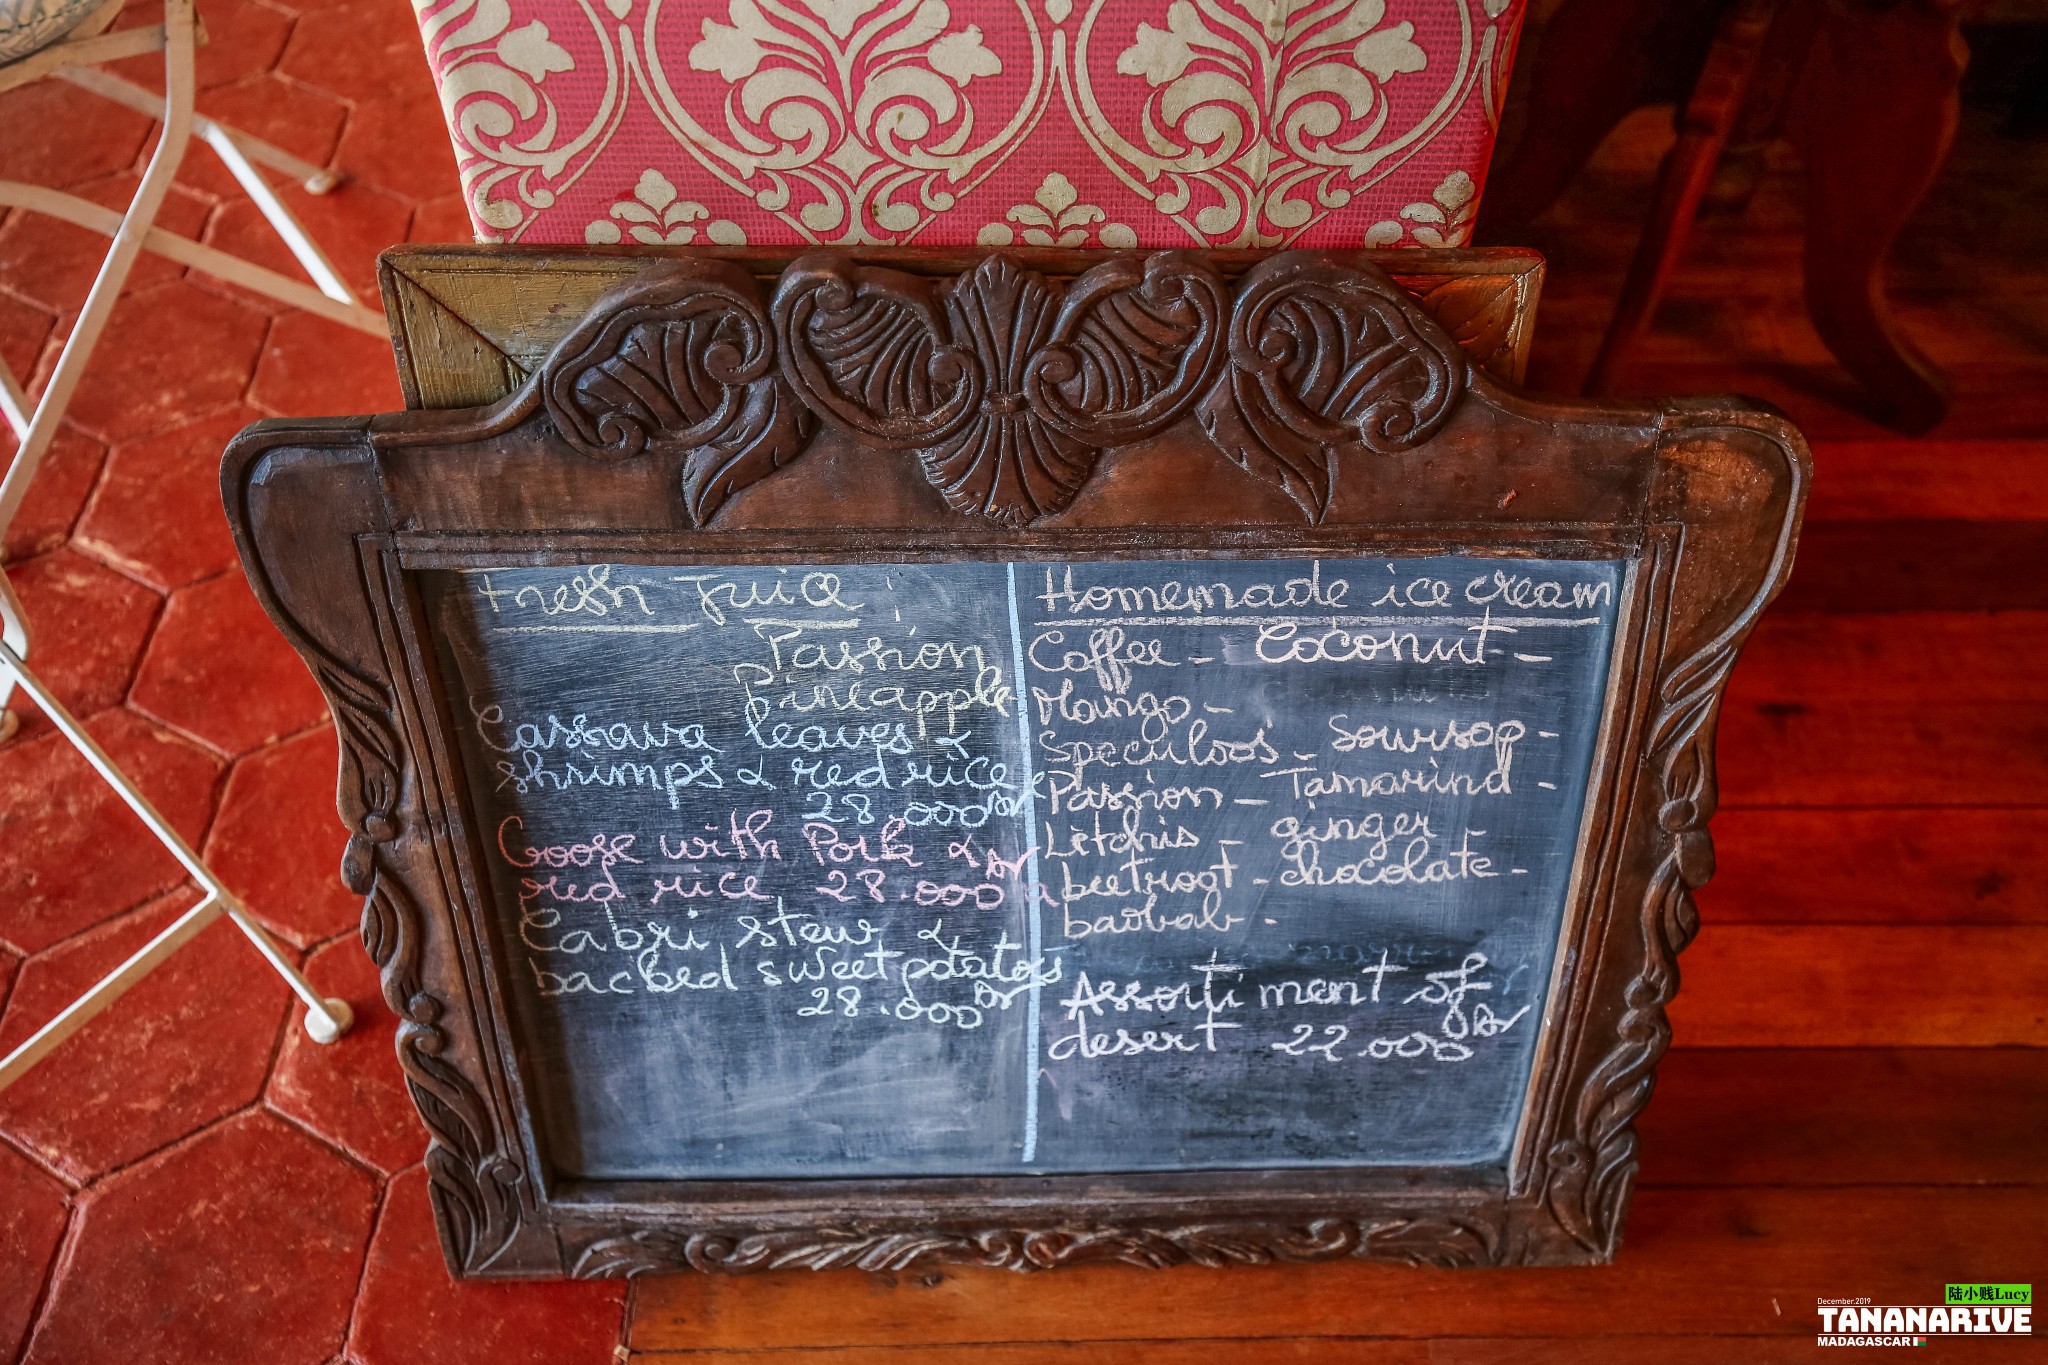 Fresh Juice :
Passion
Pineapple
Cassava leaves &
shrimps & red rice
28.000 Ar
Goose with Pork &
red rice 28.000 Ar
Cabri stew &
backed sweet potatoes
28.000 Ar
Homemade ice cream
Coffee - Coconut -
Mango -
Speculoos - Soursop -
Passion - Tamarind -
Letchis - ginger -
beetroot - chocolate -
baobab -
Assortiment of
desert 22.000 Ar
陆小贱Lucy
December.2019
TANANARIVE
MADAGASCAR